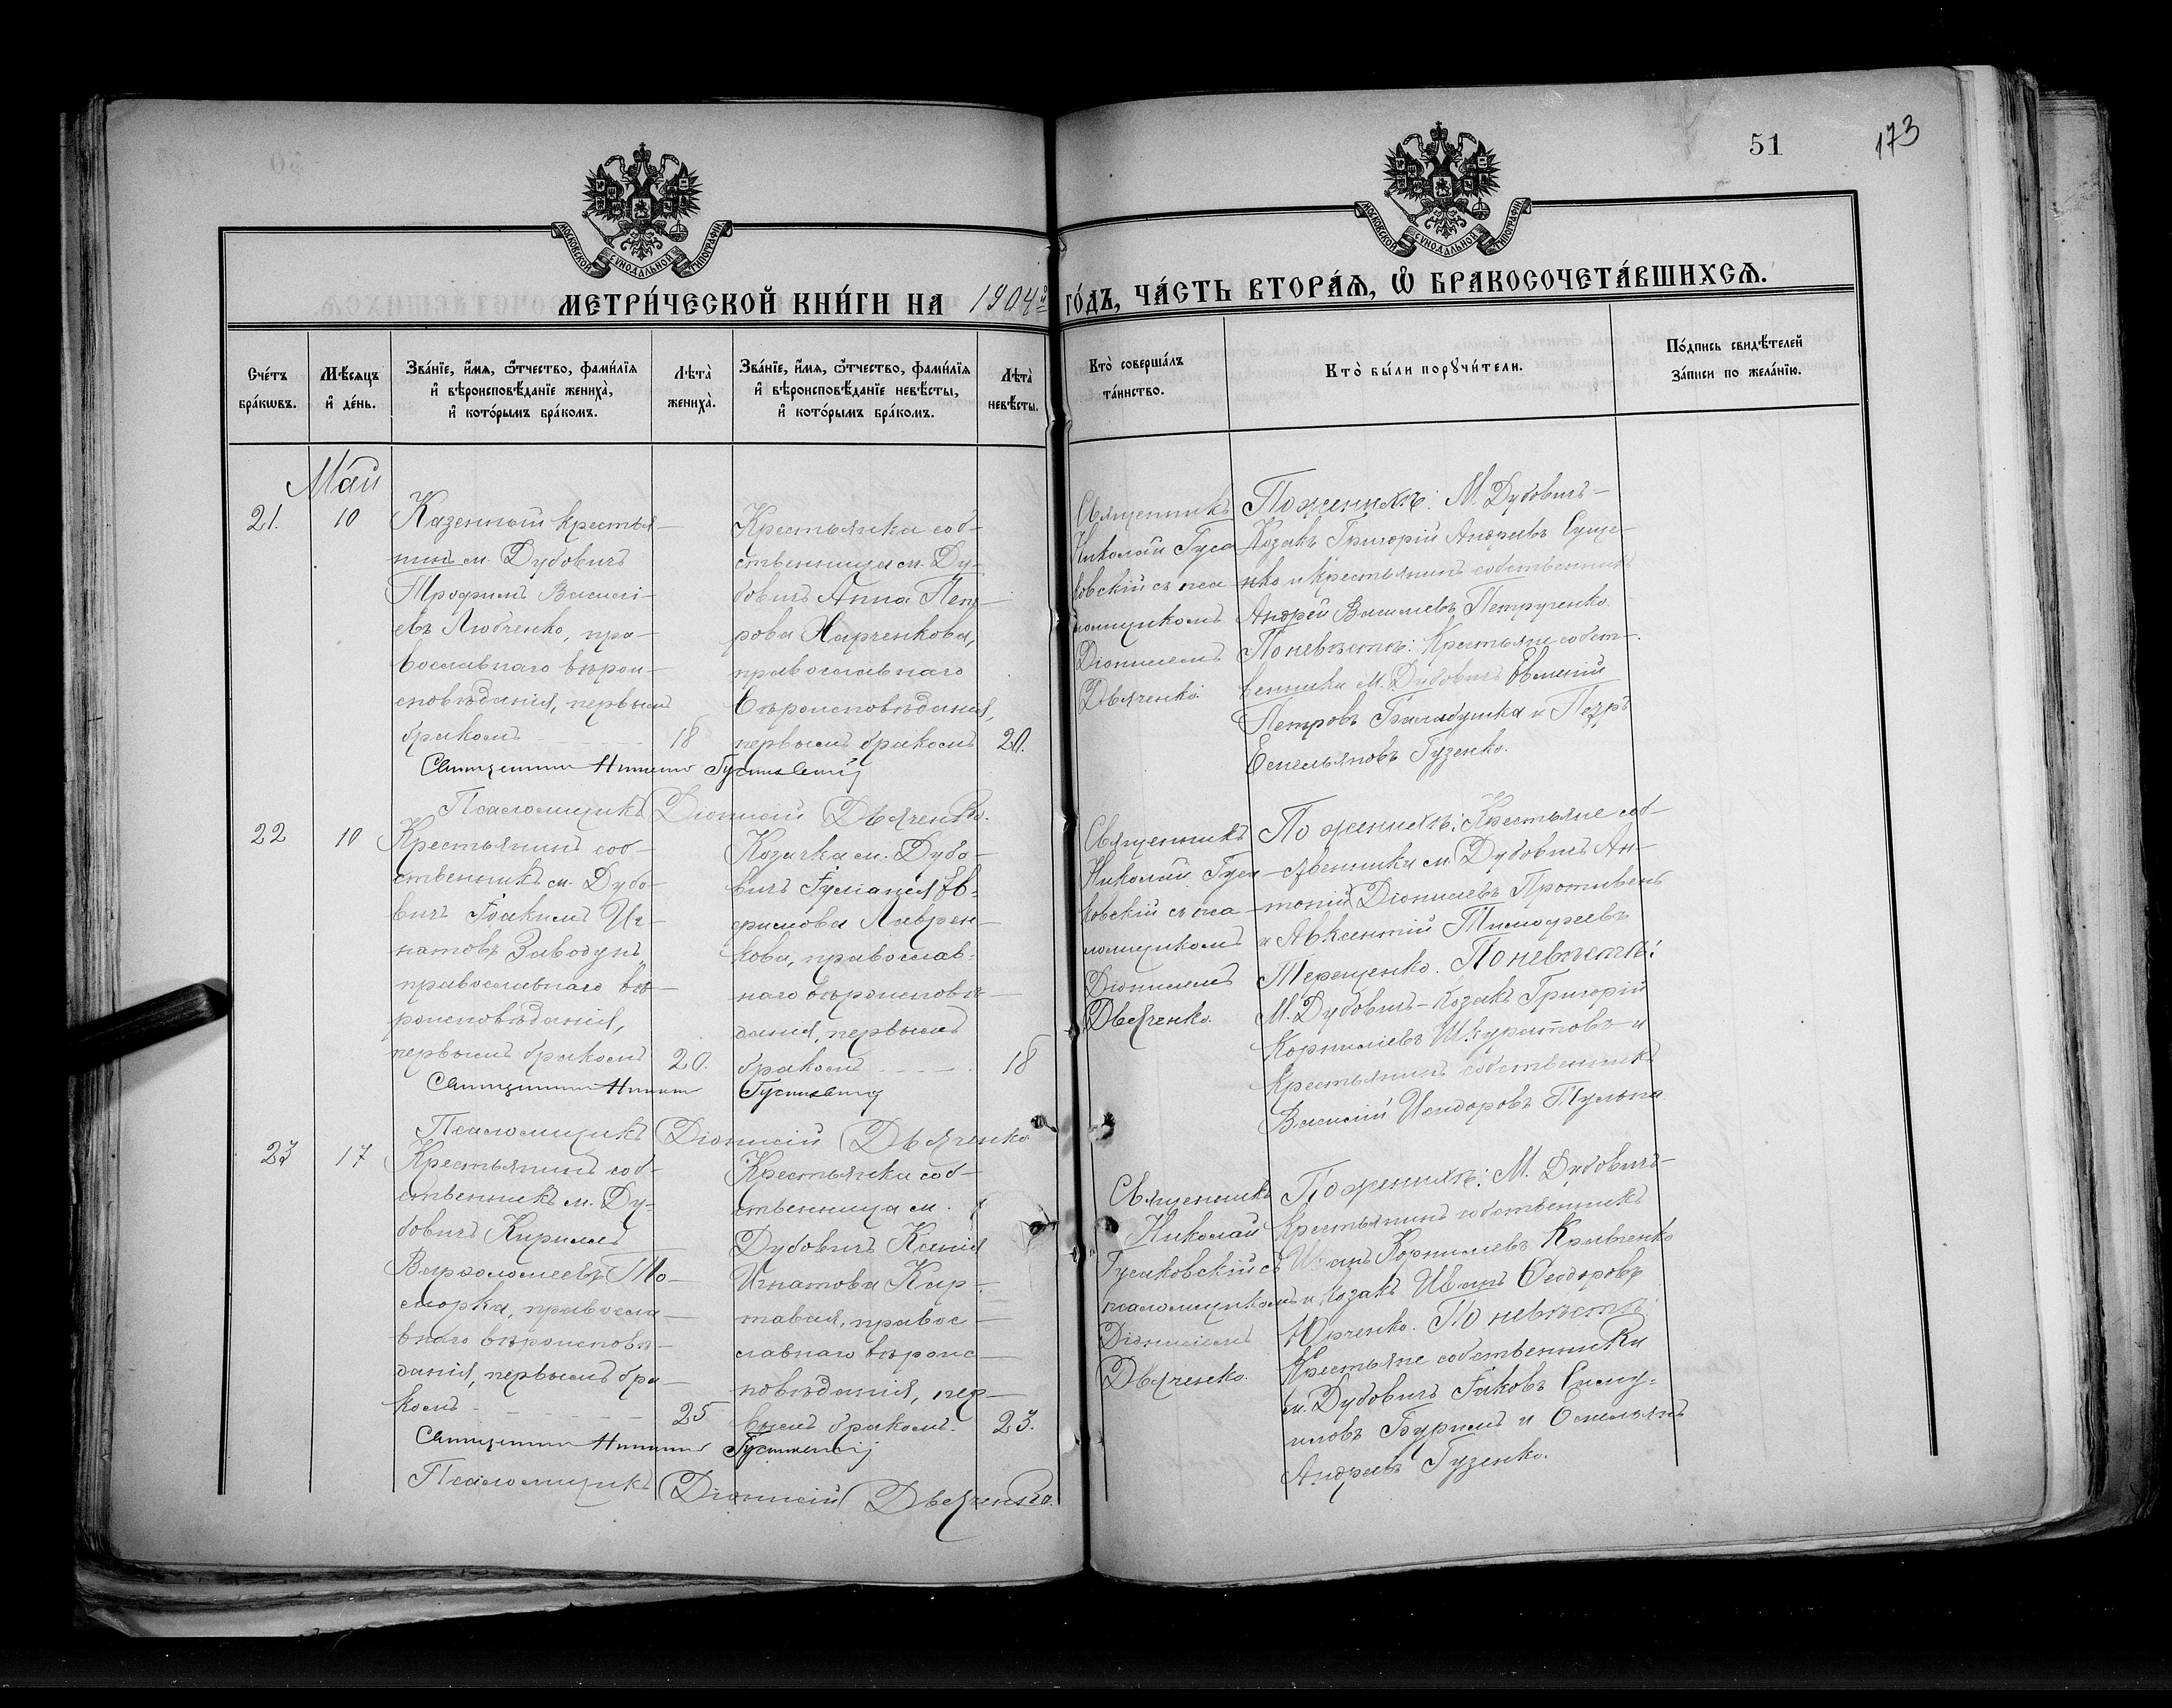 51
173
МОСКОВСКОЙ СѴНОДАЛЬНОЙ ТИПОГРАФІИ
МОСКОВСКОЙ СѴНОДАЛЬНОЙ ТИПОГРАФІИ
МЕТРИ́ЧЕСКОЙ КНИ́ГИ НА 1904й ГО́ДЪ, ЧА́СТЬ ВТОРА́Я, Ѡ҆ БРАКОСОЧЕТА́ВШИХСЯ.
Сче́тъ
бра́кѡвъ.
Мѣ́сяцъ
и҆ де́нь.
Зва́нїе, и҆́мя, ѻ҆́тчество, фами́лїя
и҆ вѣроисповѣ́данїе жениха̀,
и҆ кото́рымъ бра́комъ.
Лѣта̀
жениха̀.
Зва́нїе, и҆́мя, ѻ҆́тчество, фами́лїя
и҆ вѣроисповѣ́данїе невѣ́сты,
и҆ кото́рымъ бра́комъ.
Лѣта̀
невѣ́сты.
Кто̀ соверша́лъ
та́инство.
Кто̀ бы́ли порꙋчи́тели.
По́дпись свидѣ́телей
за́писи по жела́нїю.
Май
21. 10
Казенный крестья-
нинъ м. Дубовичъ
Трофимъ Василі-
евъ Любченко, пра-
вославнаго вѣрои-
сповѣданія, первымъ
бракомъ 18
Крестьянка соб-
ственница м. Ду-
бовичъ Анна Пет-
рова Харченкова,
православнаго
вѣроисповѣданія,
первымъ бракомъ 20.
Священникъ
Николай Гуса
ковскій съ пса
ломщикомъ
Діонисіемъ
Двяченко.
По женихѣ: М. Дубовичъ-
Козакъ Григорій Андреевъ Суще-
нко и крестьянинъ собственникъ
Андрей Василіевъ Петрученко.
По невѣстѣ: Крестьяне собст-
венники м. Дубовичъ Евменій
Петровъ Балабушка и Петръ
Емельяновъ Гузенко.
Священникъ Николай Гусаковскій
Псаломщикъ Діонисій Двяченко.
22 10
Крестьянинъ соб-
ственникъ м. Дубо-
вичъ Іоакимъ Иг-
натовъ Заводунъ,
православнаго вѣ-
роисповѣданія,
первымъ бракомъ 20.
Козачка м. Дубо-
вичъ Іуліанія Ев-
фимова Лаврен-
кова, православ-
наго вѣроисповѣ-
данія, первымъ
бракомъ 18
Священникъ
Николай Гуса-
ковскій съ пса
ломщикомъ
Діонисіемъ
Двяченко.
По женихѣ: Крестьяне соб-
ственники м. Дубовичъ Ан-
тоній Діонисіевъ Противень
и Авксентій Тимофеевъ
Терещенко. По невѣстѣ:
М. Дубовичъ-Козакъ Григорій
Корниліевъ Шкуратовъ и
Крестьянинъ собственникъ
Василій Исидоровъ
Священникъ Николай Гусаковскій
Псаломщикъ Діонисій Двяченко
23 17
Крестьянинъ соб-
ственникъ м. Ду-
бовичъ Кириллъ
Варѳоломеевъ
православ
внаго вѣроисповѣ-
данія, первымъ бра-
комъ 25
Крестьянка соб-
ственница м.
Дубовичъ Ксенія
Игнатова Кар-
тавая, правос-
славнаго вѣроис-
повѣданія, пер-
вымъ бракомъ. 23.
Священникъ
Николай
Гусаковскій съ
псаломщикомъ
Діонисіемъ
Двяченко.
По женихѣ: М. Дубовичъ-
Крестьянинъ собственникъ
Иванъ Корниліевъ Кривченко
и Козакъ Иванъ Ѳеодоровъ
Юрченко. По невѣстѣ:
Крестьяне собственники
м. Дубовичъ Іаковъ Саму-
иловъ Буримъ и Емельянъ
Андреевъ Гузенко.
Священникъ Николай Гусаковскій
Псаломщикъ Діонисій Двяченко.